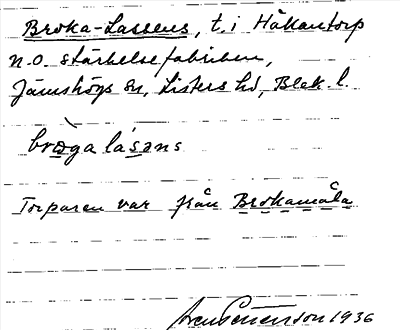 Broka-Lassens, t. i Håkantorp
n.o. stärkelsefabriken,
Jämshögs sn, Listers hd, Blek. l.
bròga lásəns
Torparen var från Brokamåla
Sven Benson 1936